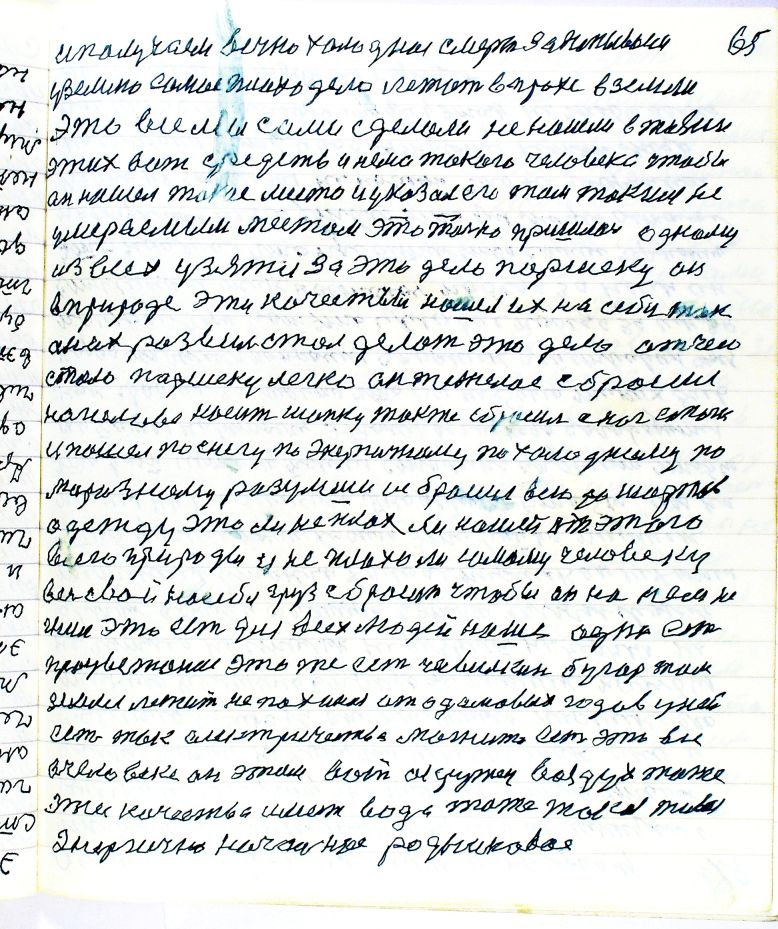 и получаем вечно холодное смерть 65
землю самое плохо дело лежат в прахе в земли
это все мы сами сделали не нашли в жизни
этих вот средств и нема такого человека чтобы
он нашел такое место и указал его там таким не
умераемым местом это точно пришлос одному
из всех узяти за это дело паршеку он
в природе эти качествы нашел их на себи так
он их развил стал делат это дело от чего
стало паршеку легко он тежелое сбросил
на голове носит шапку также сбросил с ног сапоги
и пошел по снегу по энергичному по холодному по
морозному разумеш и сбросил всю до шортов
одежду это ли не плох ли нашей от этого
всего природи и не плохо ли самому человеку
вен свой на себя груз сбросит чтобы он на нем не
жил это ест для всех людей наше одно ест
процветание это же ест чевилкин бугор там
земля лежит не пахина от адамовых годов у ней
ест ток електричества магнито ест это все
в человеке он этим вот окружен воздух тоже
эти качества имеет вода тоже такая жива
энергично родниковое